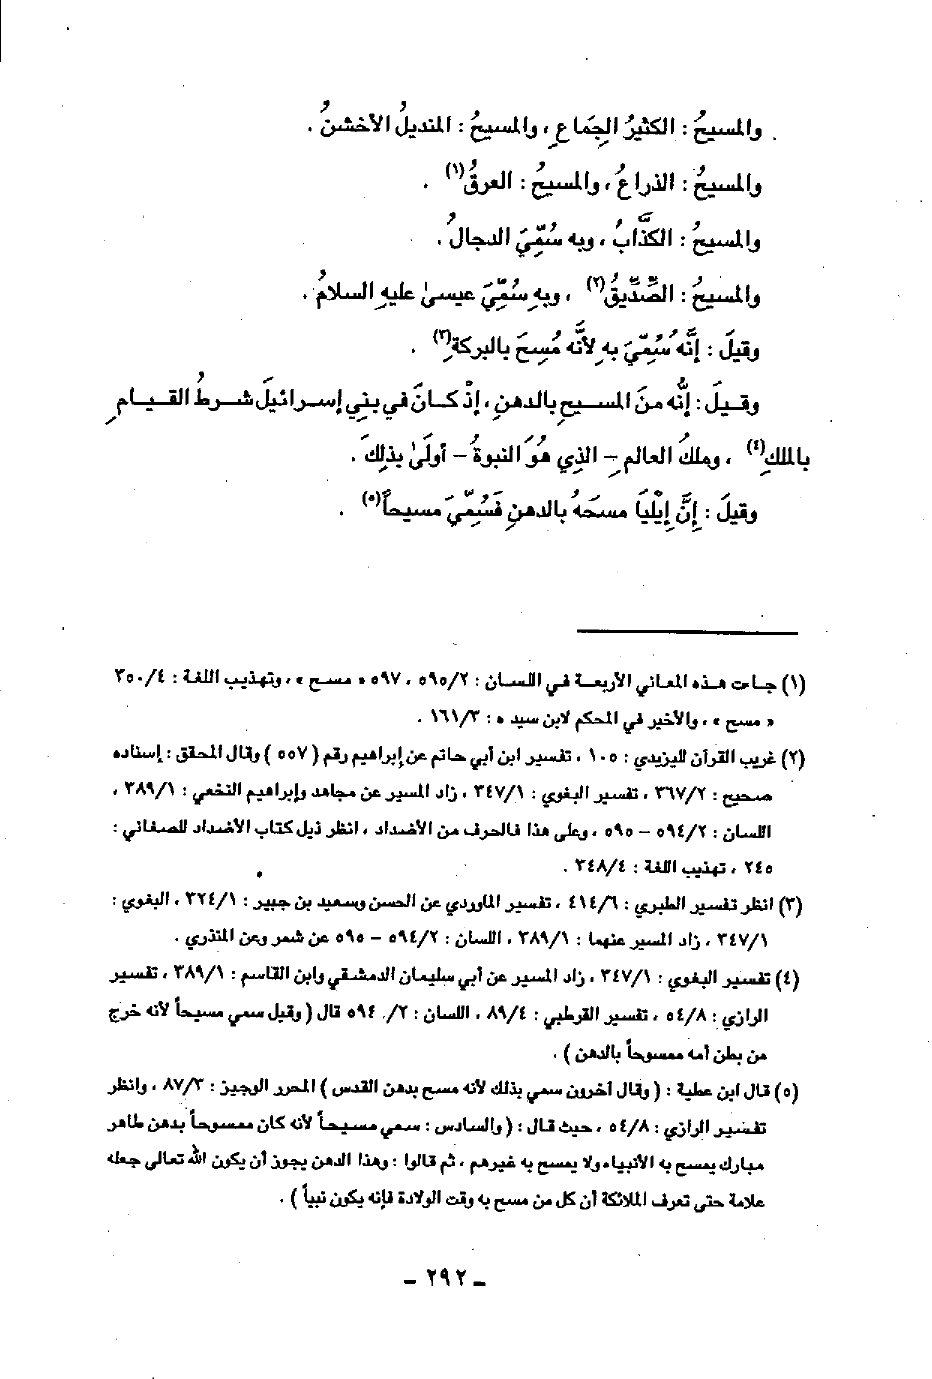 والمسيحُ : الكثيرُ الجِمَاعِ ، والمسيحُ : المنديلُ الأخشنُ .
والمسيحُ : الذراعُ ، والمسيحُ : العرقُ(١) .
والمسيحُ : الكذَّابُ ، وبه سُمِّيَ الدجالُ .
والمسيحُ : الصِّدِّيقُ(٢) ، وبهِ سُمِّيَ عيسىٰ عليهِ السلامُ .
وقيلَ : إنَّه سُمِّيَ بهِ لأنَّه مُسِحَ بالبركةِ(٣) .
وقيلَ : إنَّه منَ المسيحِ بالدهنِ ، إذْ كانَ في بنِي إسرائيلَ شرطُ القيامِ
بالملكِ(٤) ، وملكُ العالمِ – الذي هُوَ النبوةُ – أولَىٰ بذلِكَ .
وقيلَ : إنَّ إيْليَا مسحَهُ بالدهنِ فَسُمِّيَ مسيحاً(٥) .
(١) جاءت هذه المعاني الأربعة في اللسان : ٥٩٥/٢ ، ٥٩٧ « مسح » ، وتهذيب اللغة : ٣٥٠/٤
« مسح » ، والأخير في المحكم لابن سيده : ١٦١/٣ .
(٢) غريب القرآن لليزيدي : ١٠٥ ، تفسير ابن أبي حاتم عن إبراهيم رقم ( ٥٥٧ ) وقال المحقق : إسناده
صحيح : ٣٦٧/٢ ، تفسير البغوي : ٣٤٧/١ ، زاد المسير عن مجاهد وإبراهيم النخعي : ٣٨٩/١ ،
اللسان : ٥٩٤/٢ – ٥٩٥ ، وعلى هذا فالحرف من الأضداد ، انظر ذيل كتاب الأضداد للصغاني :
٢٤٥ ، تهذيب اللغة : ٣٤٨/٤ .
(٣) انظر تفسير الطبري : ٤١٤/٦ ، تفسير الماوردي عن الحسن وسعيد بن جبير : ٣٢٤/١ ، البغوي :
٣٤٧/١ ، زاد المسير عنهما : ٣٨٩/١ ، اللسان : ٥٩٤/٢ – ٥٩٥ عن شمر وعن المنذري .
(٤) تفسير البغوي : ٣٤٧/١ ، زاد المسير عن أبي سليمان الدمشقي وابن القاسم : ٣٨٩/١ ، تفسير
الرازي : ٥٤/٨ ، تفسير القرطبي : ٨٩/٤ ، اللسان : ٢/. ٥٩٤ قال ( وقيل سمي مسيحاً لأنه خرج
من بطن أمه ممسوحاً بالدهن ) .
(٥) قال ابن عطية : ( وقال آخرون سمي بذلك لأنه مسح بدهن القدس ) المحرر الوجيز : ٨٧/٣ ، وانظر
تفسير الرازي : ٥٤/٨ ، حيث قال : ( والسادس : سمي مسيحاً لأنه كان ممسوحاً بدهن طاهر
مبارك يمسح به الأنبياء ولا يمسح به غيرهم ، ثم قالوا : وهذا الدهن يجوز أن يكون الله تعالى جعله
علامة حتى تعرف الملائكة أن كل من مسح به وقت الولادة فإنه يكون نبياً ) .
– ٢٩٢ –